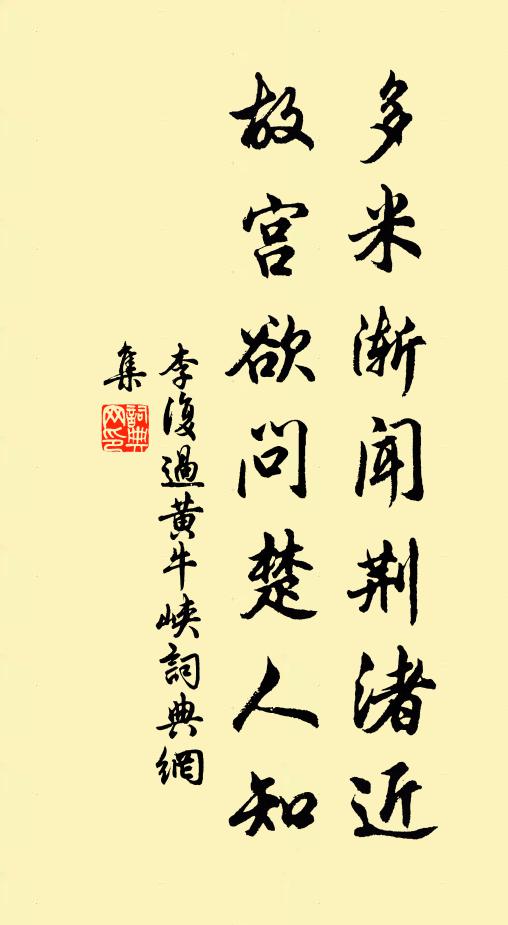 多米渐闻荆渚近
故宫欲问楚人知
李復過黃牛峽詞典網
集
詞典网印